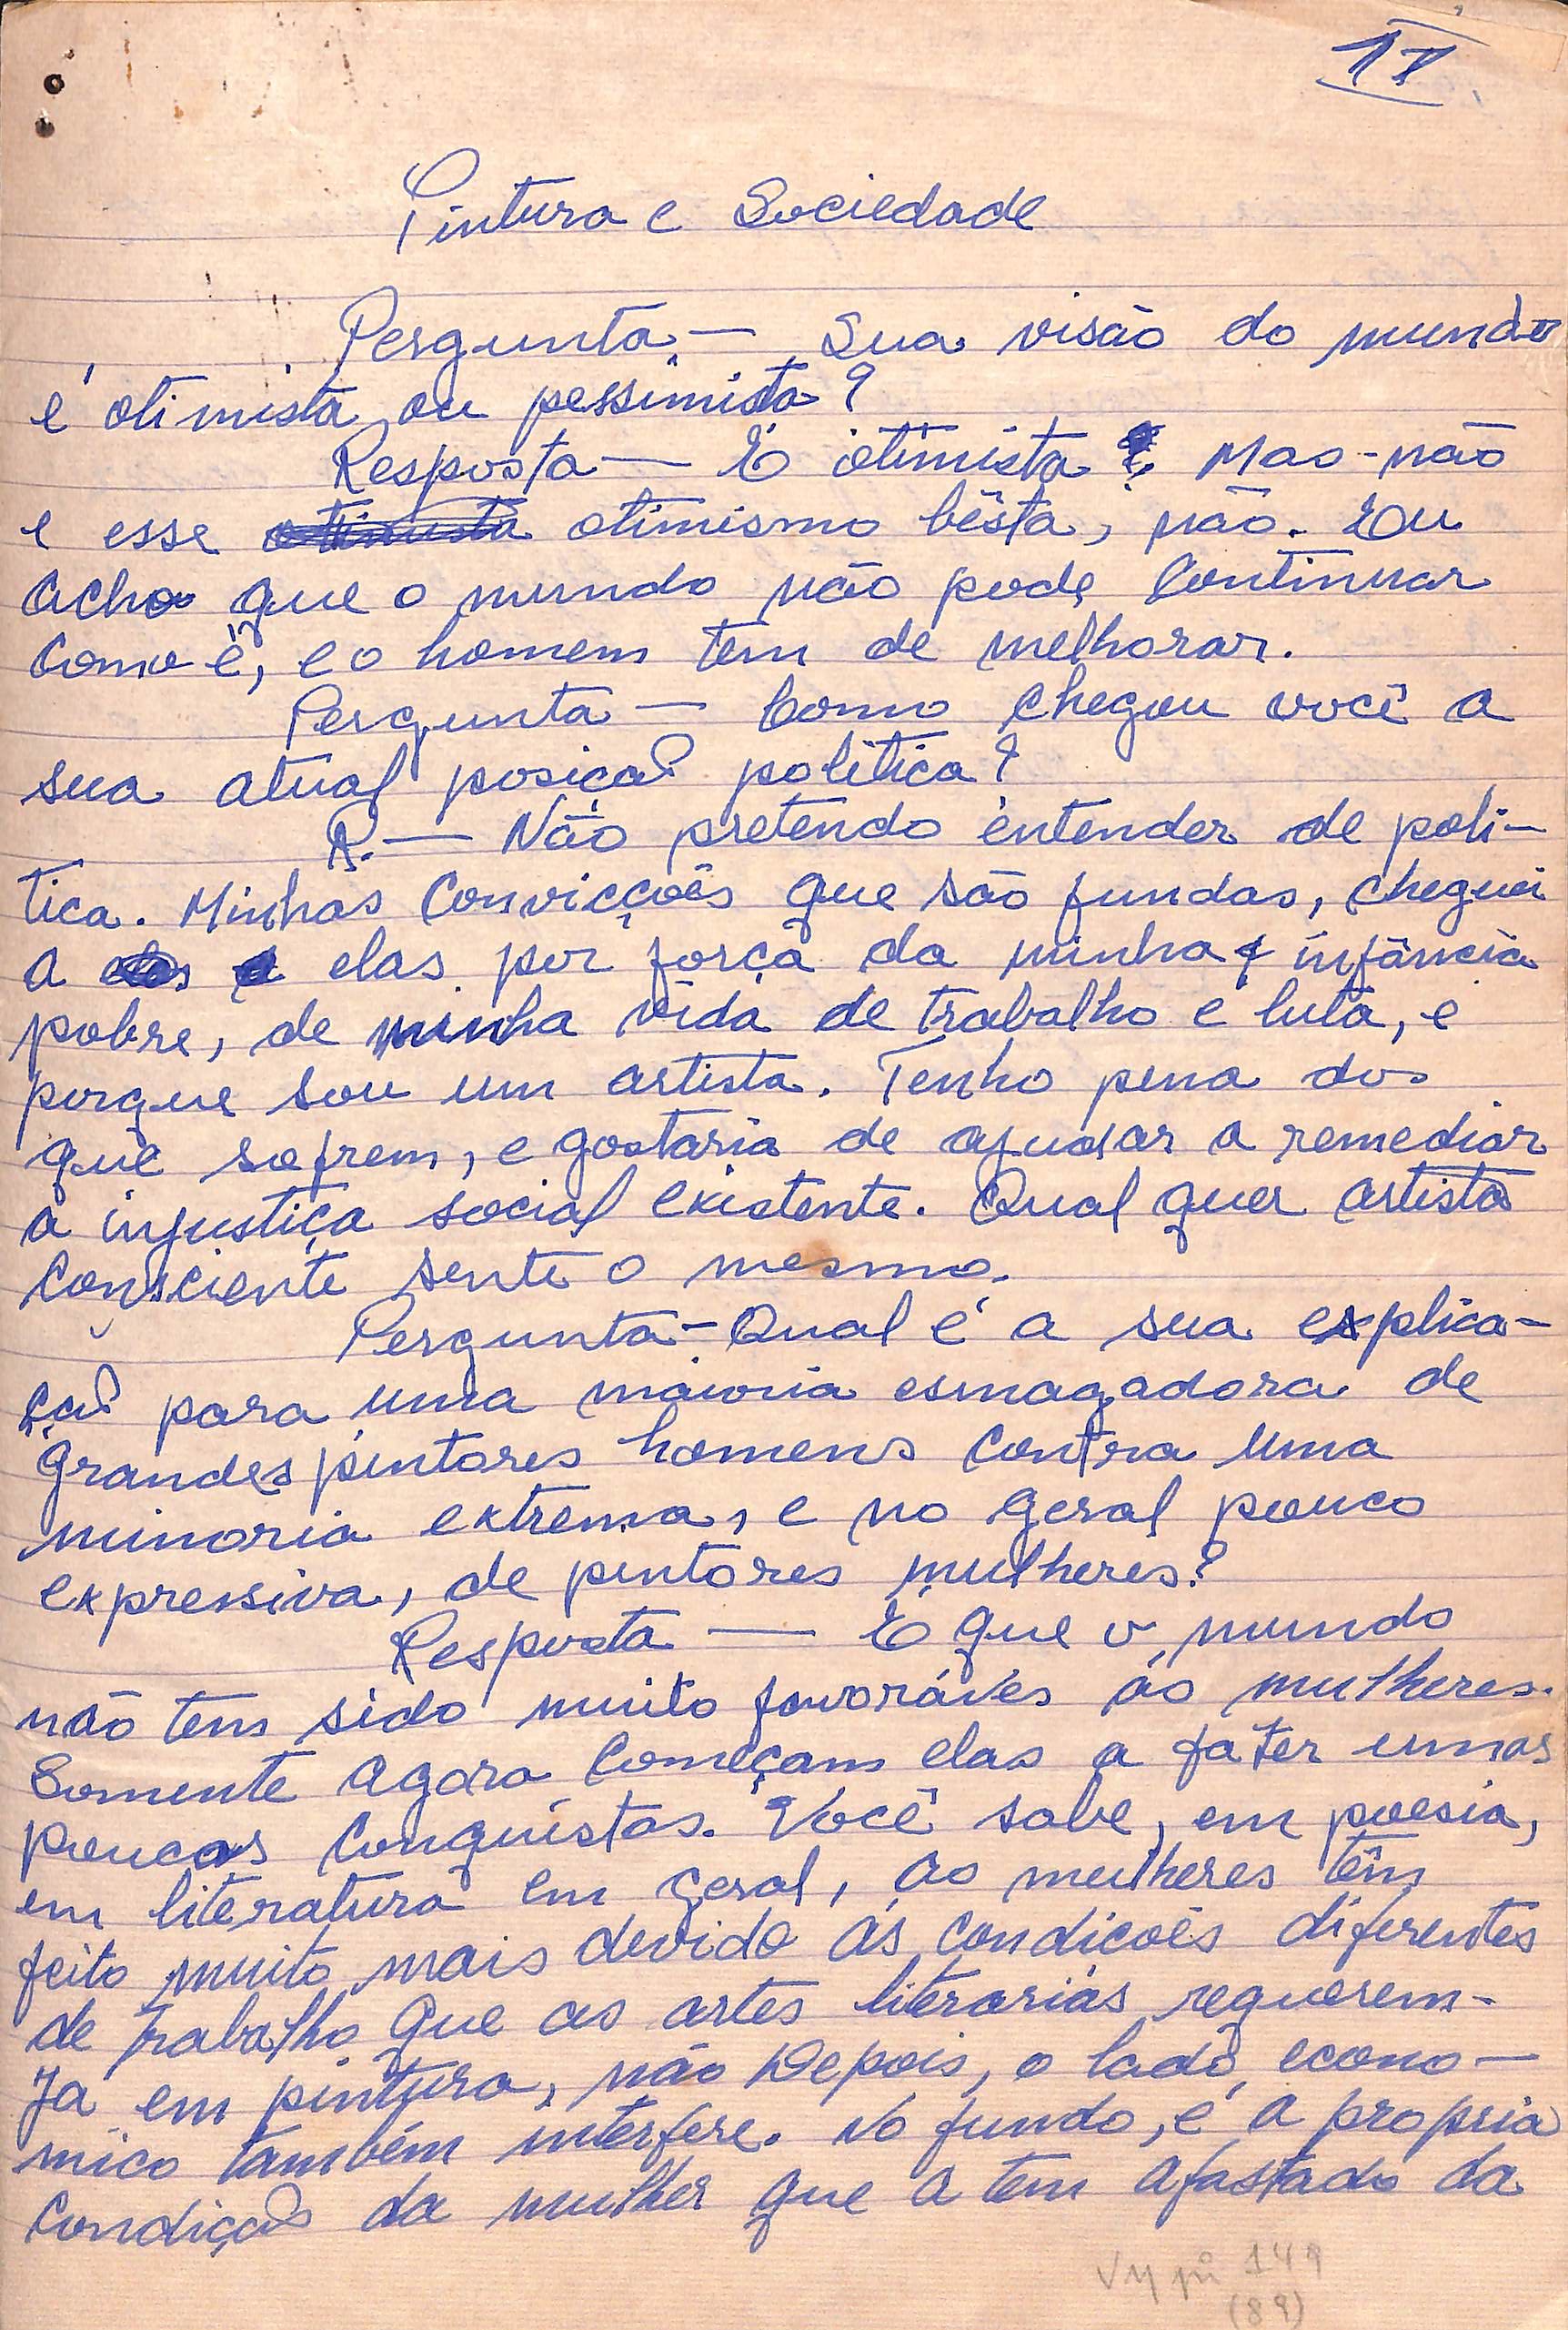 17
Pintura e Sociedade
Pergunta — Sua visão do mundo
é otimista ou pessimista?
Resposta — É otimista. Mas não
e esse otimista otimismo bêsta, não. Eu
acho que o mundo não pode continuar
como é, e o homem tem de melhorar.
Pergunta — Como chegou você a
sua atual posição politica?
R. — Não pretendo entender de poli-
tica. Minhas convicções que são fundas, cheguei
a elas por força da minha infância
pobre, de minha vida de trabalho e luta, e
porque sou um artista. Tenho pena dos
que sofrem, e gostaria de ajudar a remediar
a injustiça social existente. Qual quer artista
consciente sente o mesmo.
Pergunta - Qual é a sua explica-
ção para uma maioria esmagadora de
grandes pintores homens contra uma
minoria extrema, e no geral pouco
expressiva, de pintores mulheres?
Resposta — É que o mundo
não tem sido muito favoráves ás mulheres.
Somente agora começam elas a fazer umas
poucas conquistas. Você sabe, em poesia,
em literatura em geral, as mulheres têm
feito muito mais devido ás condicões diferentes
de trabalho que as artes literarias requerem.
Já em pintura, não Depois, o lado econo-
mico também interfere. No fundo, é a propria
condição da mulher que a tem afastado da
149
(89)